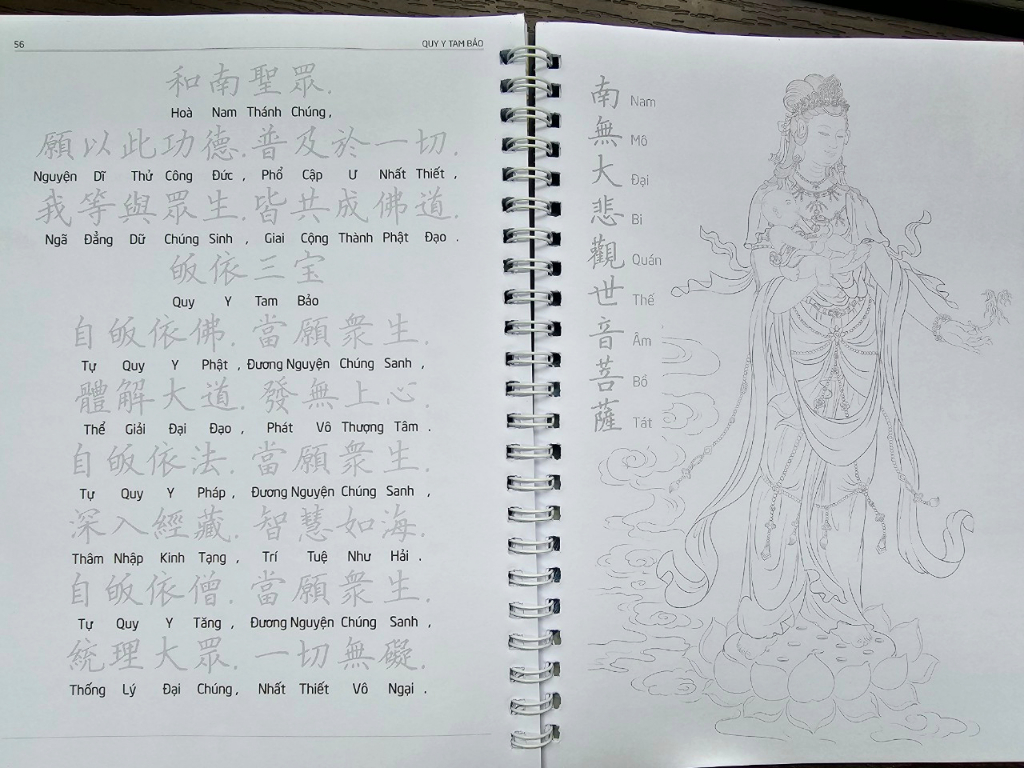 56
QUY Y TAM BẢO
和南聖眾.
Hoà Nam Thánh Chúng,
願以此功德.普及於一切.
Nguyện Dĩ Thử Công Đức, Phổ Cập Ư Nhất Thiết,
我等與眾生.皆共成佛道.
Ngã Đẳng Dữ Chúng Sinh, Giai Cộng Thành Phật Đạo.
皈依三宝
Quy Y Tam Bảo
自皈依佛.當願衆生.
Tự Quy Y Phật, Đương Nguyện Chúng Sanh,
體解大道.發無上心.
Thể Giải Đại Đạo, Phát Vô Thượng Tâm.
自皈依法.當願衆生.
Tự Quy Y Pháp, Đương Nguyện Chúng Sanh,
深入經藏.智慧如海.
Thâm Nhập Kinh Tạng, Trí Tuệ Như Hải.
自皈依僧.當願衆生.
Tự Quy Y Tăng, Đương Nguyện Chúng Sanh,
統理大眾.一切無礙.
Thống Lý Đại Chúng, Nhất Thiết Vô Ngại.
南 Nam
無 Mô
大 Đại
悲 Bi
觀 Quán
世 Thế
音 Âm
菩 Bồ
薩 Tát